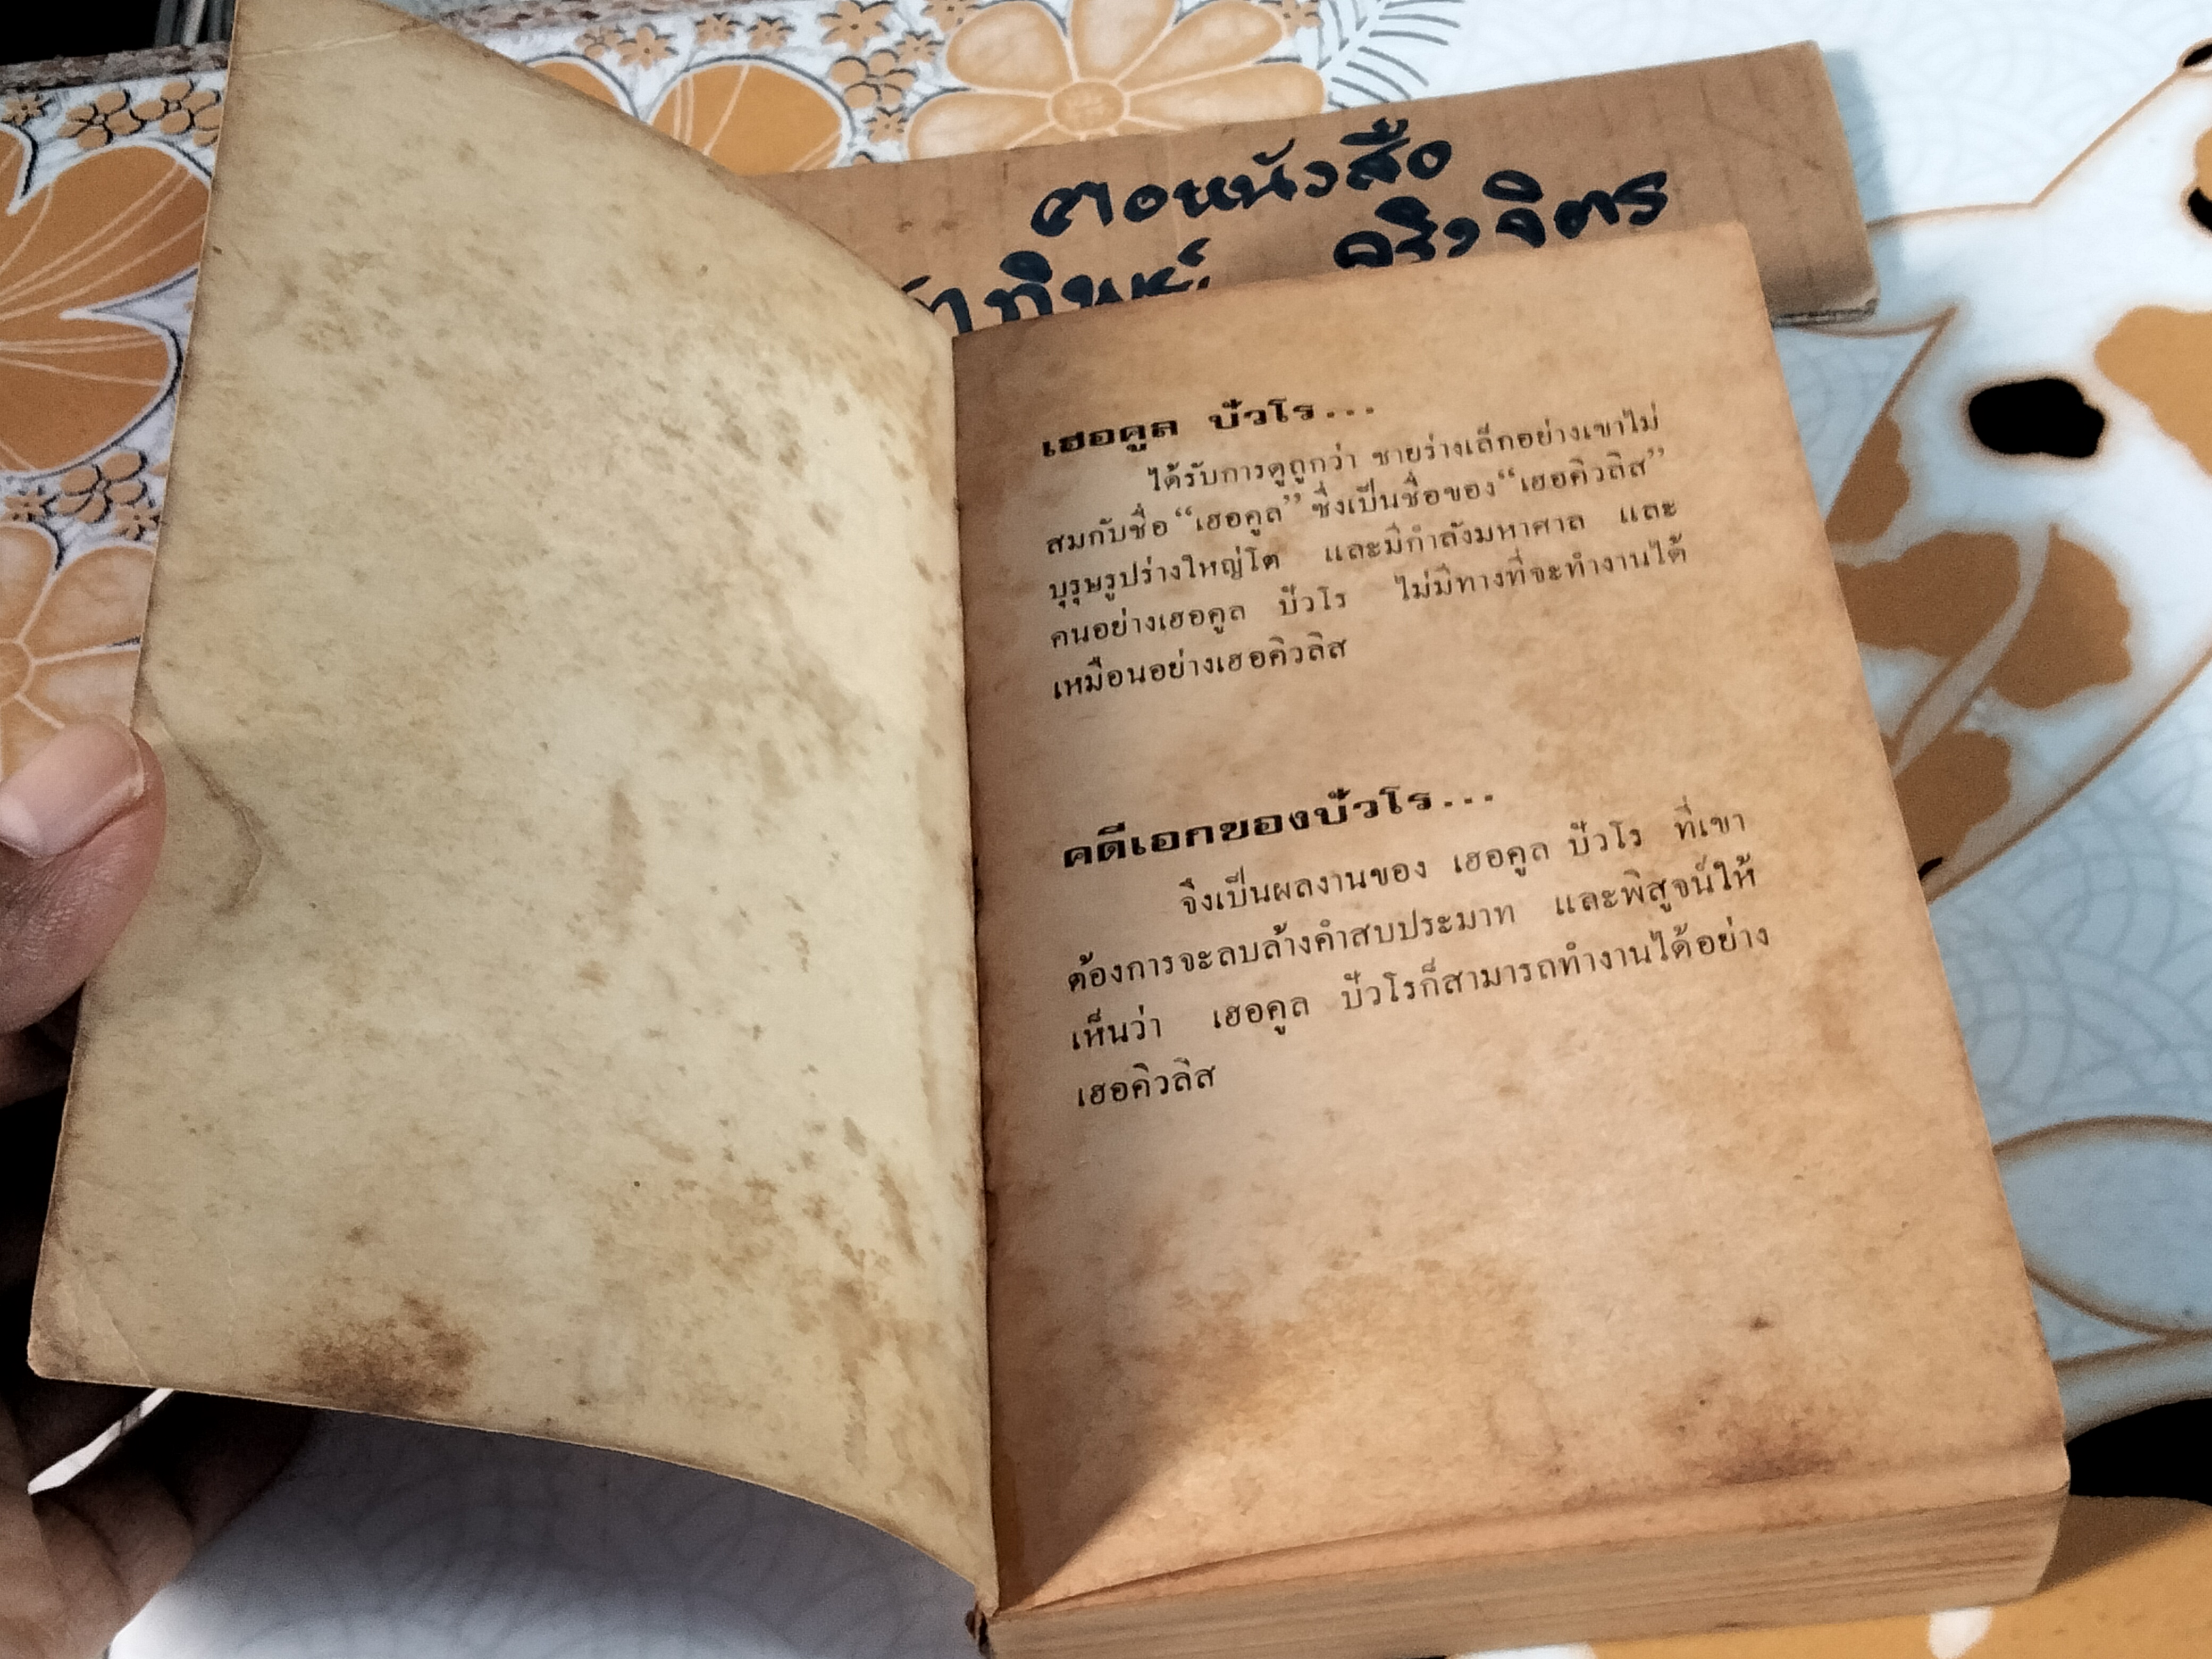 คอหนังสือ
ทิพย์ จริงจิตร
เฮอคูล ปัวโร...
ได้รับการดูถูกว่า ชายร่างเล็กอย่างเขาไม่
สมกับชื่อ “เฮอคูล” ซึ่งเป็นชื่อของ “เฮอคิวลิส”
บุรุษรูปร่างใหญ่โต และมีกำลังมหาศาล และ
คนอย่างเฮอคูล ปัวโร ไม่มีทางที่จะทำงานได้
เหมือนอย่างเฮอคิวลิส
คดีเอกของปัวโร...
จึงเป็นผลงานของ เฮอคูล ปัวโร ที่เขา
ต้องการจะลบล้างคำสบประมาท และพิสูจน์ให้
เห็นว่า เฮอคูล ปัวโรก็สามารถทำงานได้อย่าง
เฮอคิวลิส